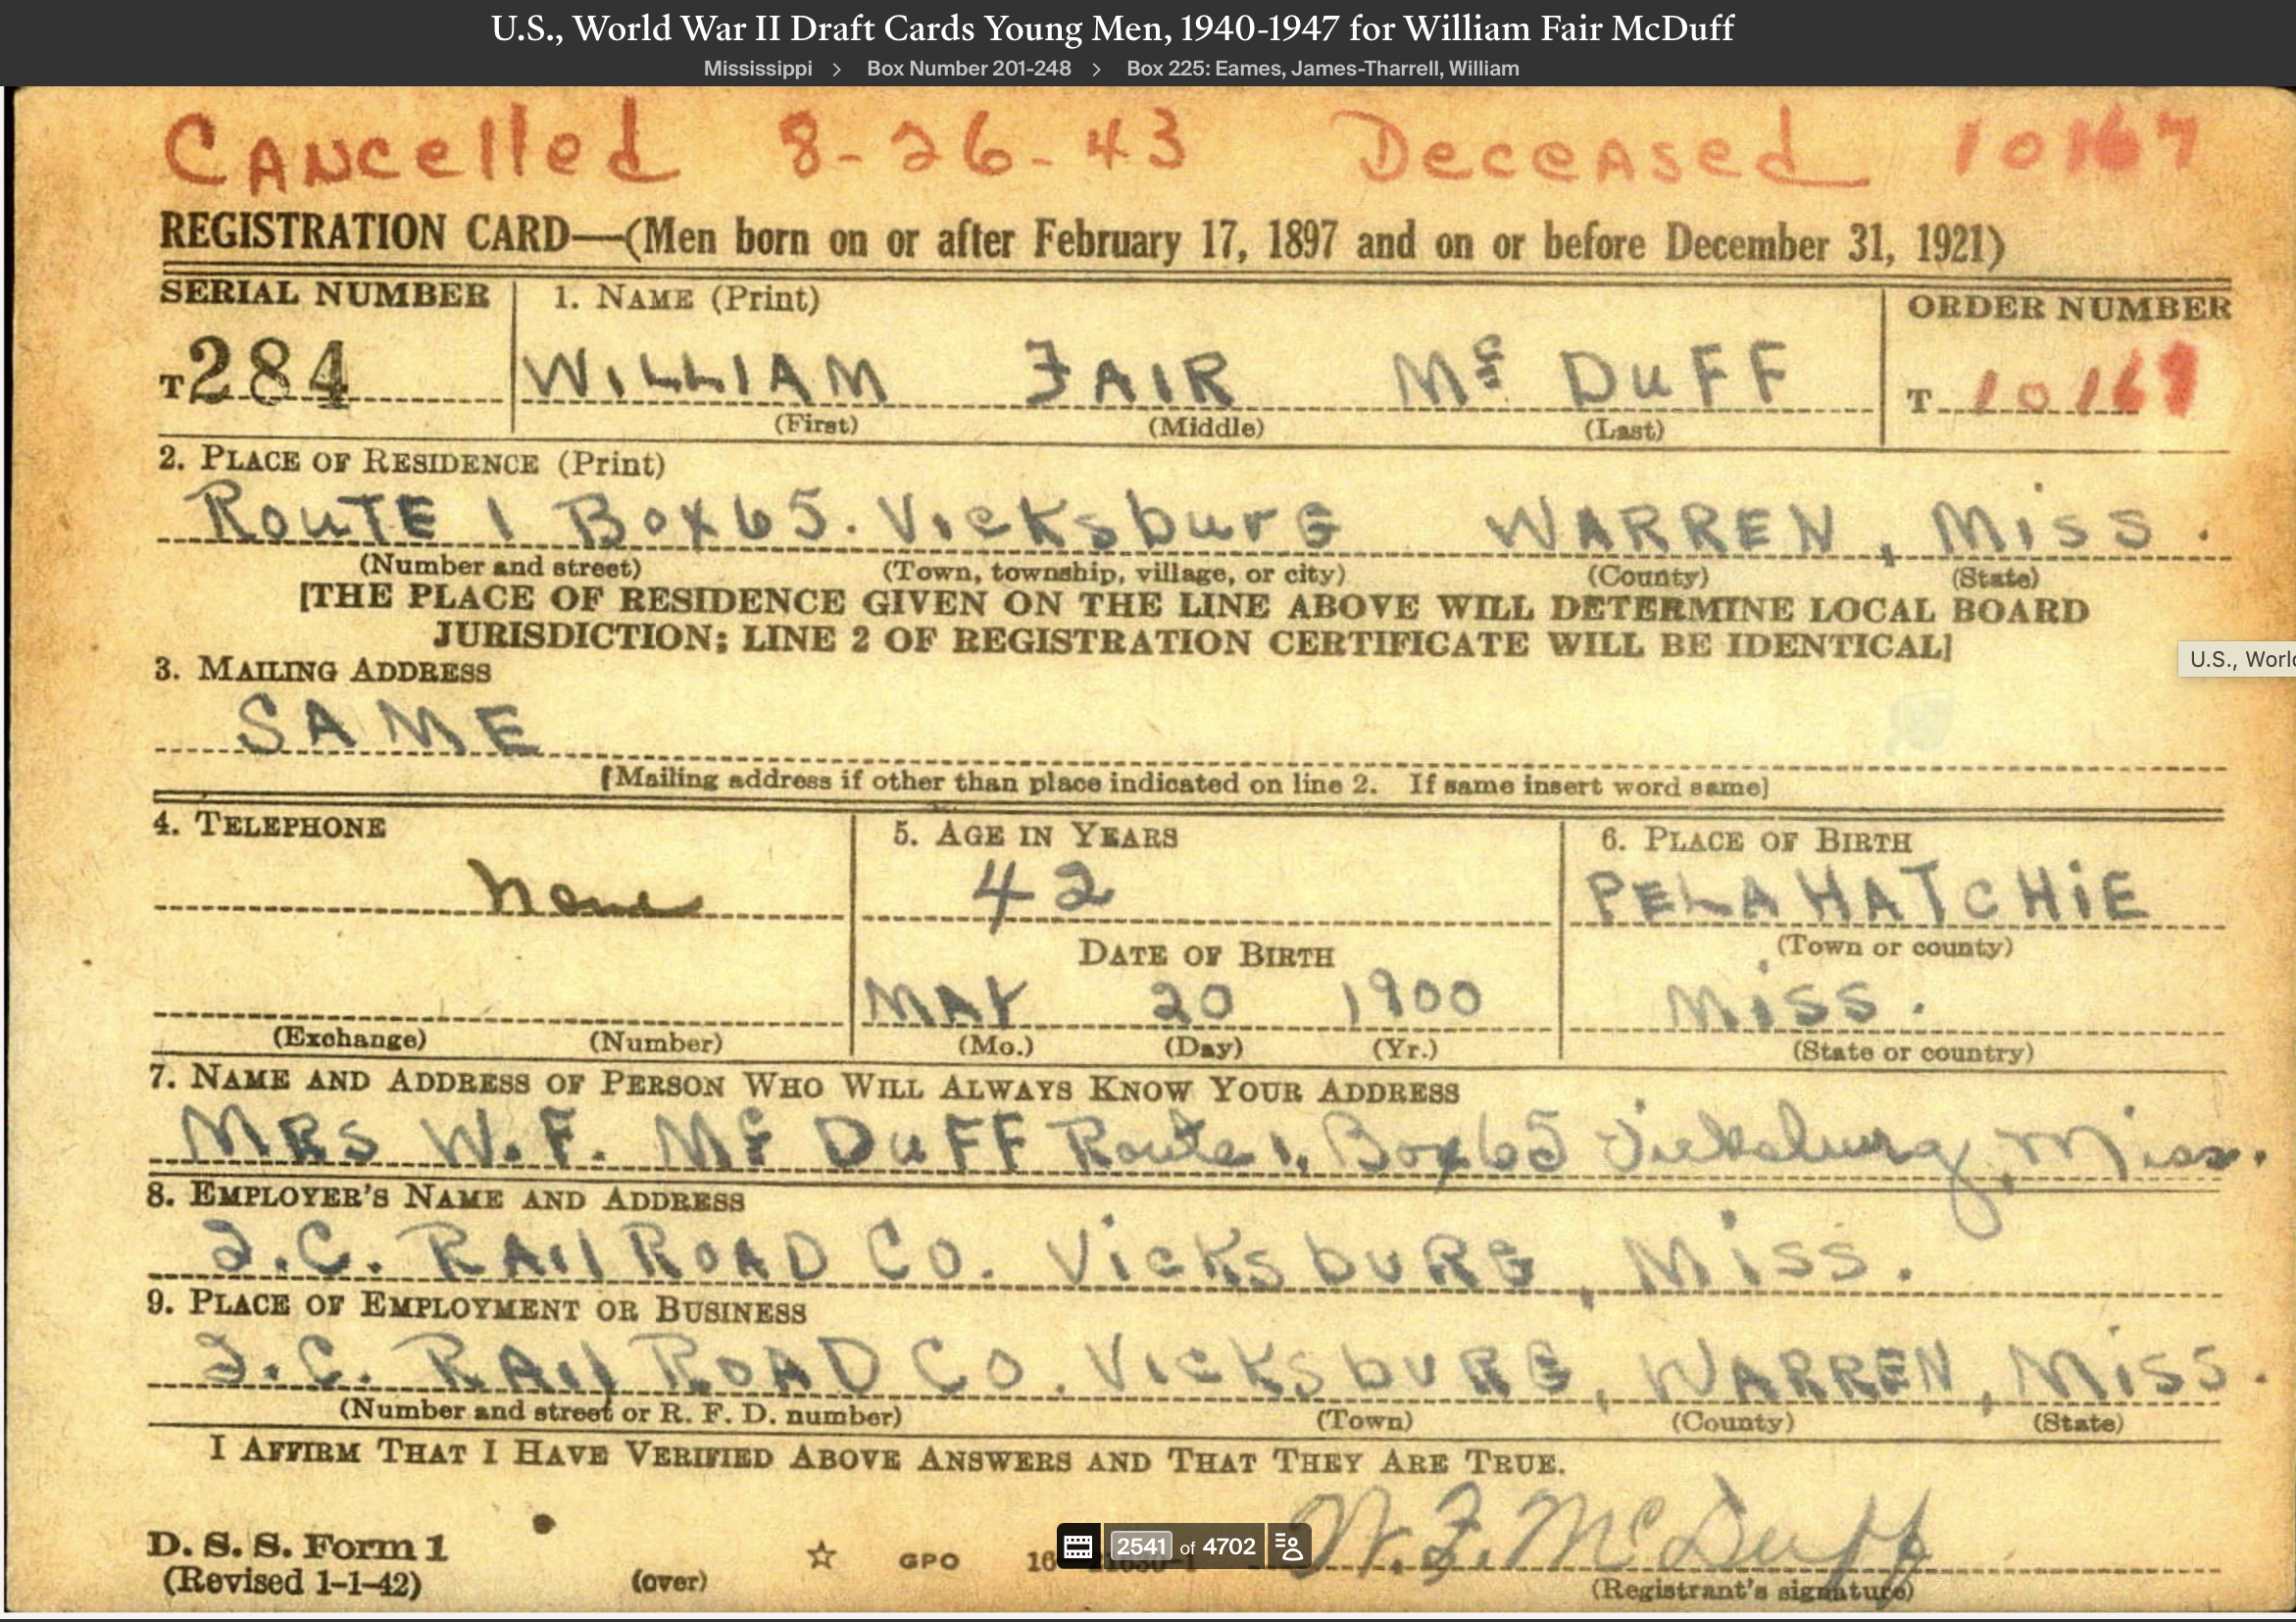 U.S., World War II Draft Cards Young Men, 1940-1947 for William Fair McDuff
Mississippi > Box Number 201-248 > Box 225: Eames, James-Tharrell, William
Cancelled 8-26-43 Deceased 10167
REGISTRATION CARD—(Men born on or after February 17, 1897 and on or before December 31, 1921)
SERIAL NUMBER 1. NAME (Print) ORDER NUMBER
T 284 WILLIAM FAIR Mc DUFF T 10169
(First) (Middle) (Last)
2. PLACE OF RESIDENCE (Print)
ROUTE 1 Box 65. VicksburG WARREN, Miss.
(Number and street) (Town, township, village, or city) (County) (State)
[THE PLACE OF RESIDENCE GIVEN ON THE LINE ABOVE WILL DETERMINE LOCAL BOARD
JURISDICTION; LINE 2 OF REGISTRATION CERTIFICATE WILL BE IDENTICAL]
U.S., World
3. MAILING ADDRESS
SAME
[Mailing address if other than place indicated on line 2. If same insert word same]
4. TELEPHONE 5. AGE IN YEARS 6. PLACE OF BIRTH
None 42 PELAHATCHiE
DATE OF BIRTH (Town or county)
MAY 20 1900 Miss.
(Exchange) (Number) (Mo.) (Day) (Yr.) (State or country)
7. NAME AND ADDRESS OF PERSON WHO WILL ALWAYS KNOW YOUR ADDRESS
MRS W.F. Mc DUFF Route 1, Box 65 Vicksburg, Miss.
8. EMPLOYER'S NAME AND ADDRESS
I.C. RAilROAD Co. VicksbURG, Miss.
9. PLACE OF EMPLOYMENT OR BUSINESS
I.C. RAilROAD Co. VicksbURG, WARREN, Miss.
(Number and street or R. F. D. number) (Town) (County) (State)
I AFFIRM THAT I HAVE VERIFIED ABOVE ANSWERS AND THAT THEY ARE TRUE.
W. F. McDuff
D. S. S. Form 1 GPO 16 2541 of 4702
(Revised 1-1-42) (over) (Registrant's signature)